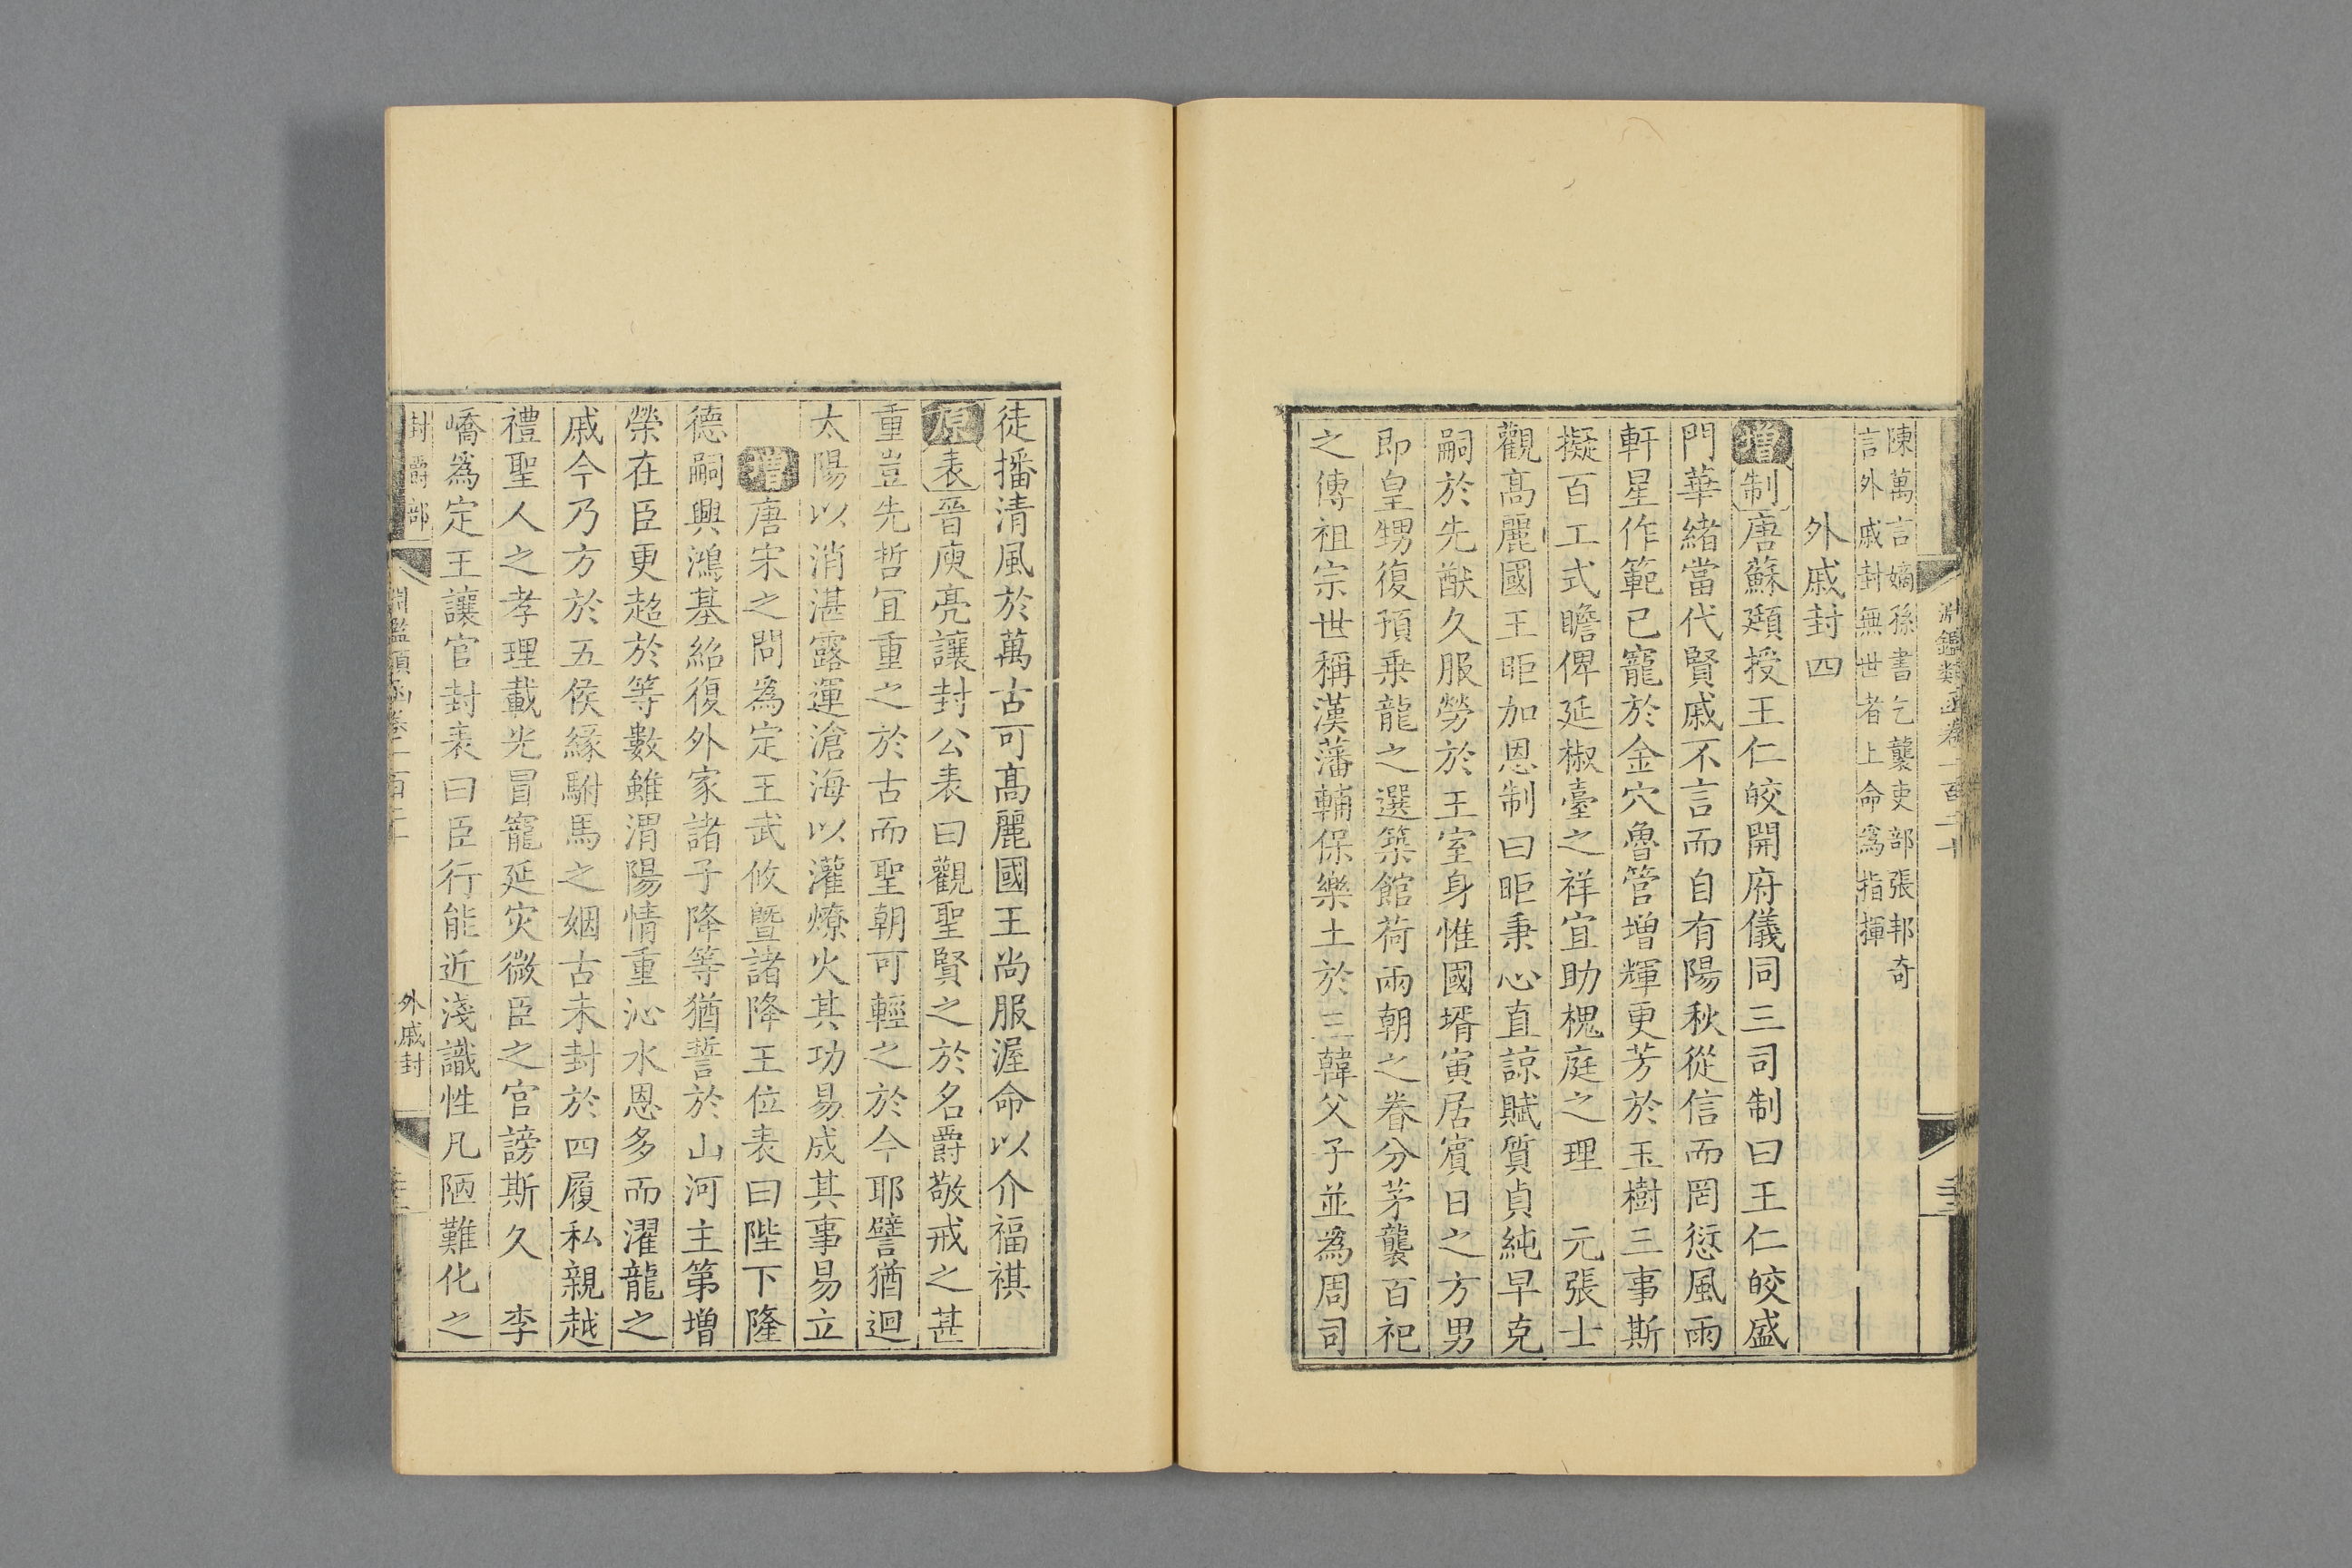 淵鑑類函卷一百二十
陳萬言嫡孫書乞襲吏部張邦奇
言外戚封無世者上命爲指揮
外戚封四
增制唐蘇頲授王仁皎開府儀同三司制曰王仁皎盛
門華緒當代賢戚不言而自有陽秋從信而罔愆風雨
軒星作範已寵於金穴魯管增輝更芳於玉樹三事斯
擬百工式瞻俾延椒臺之祥宜助槐庭之理　元張士
觀高麗國王昛加恩制曰昛秉心直諒賦質貞純早克
嗣於先猷久服勞於王室身惟國壻寅居賓日之方男
即皇甥復預乗龍之選築館荷兩朝之眷分茅襲百祀
之傳祖宗世稱漢藩輔保樂土於三韓父子並為周司
徒播清風於萬古可高麗國王尚服渥命以介福祺
原表晉庾亮讓封公表曰觀聖賢之於名爵敬戒之甚
重豈先哲冝重之於古而聖朝可輕之於今耶譬猶迴
太陽以消湛露運滄海以灌燎火其功易成其事易立
增唐宋之問為定王武攸暨諸降王位表曰陛下隆
德嗣興鴻基紹復外家諸子降等猶誓於山河主第增
榮在臣更超於等數雖渭陽情重沁水恩多而濯龍之
戚今乃方於五侯緣駙馬之姻古未封於四履私親越
禮聖人之孝理載光冒寵延灾微臣之官謗斯久　李
嶠爲定王讓官封表曰臣行能近淺識性凡陋難化之
封爵部
淵鑑類函卷一百二十
外戚封